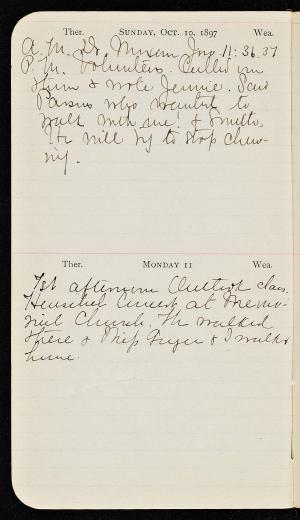 Ther. SUNDAY, OCT. 10, 1897 Wea.
A.M. Dr. Jno. 11: 36.37
P.M. Volunteers. Called on
& wrote Jennie. Said
Parsons who wanted to
walk with me! &
He will try to stop chew-
ing.
Ther. MONDAY 11 Wea.
1st afternoon class.
Henschel Concert at Memo-
rial Church. We walked
there & Miss & I walked
home.